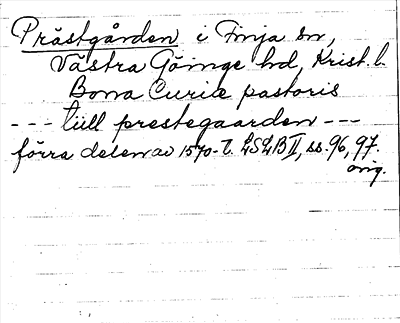 Prästgården i Finja sn,
Västra Göinge hd, Krist. l.
Bona Curie pastoris
--- tiill prestegaarden ---
förra delen av 1570-t. LSLB II, ss. 96, 97.
orig.